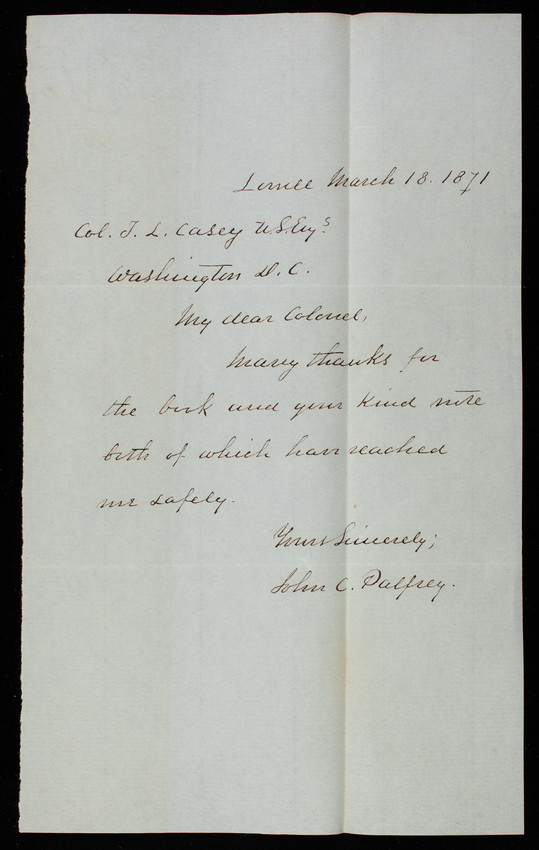 Lowell March 18. 1871
Col. T. L. Casey U.S.Engs.
Washington D. C.
My dear Colonel,
Many thanks for
the book and your kind note
both of which have reached
me safely.
Yours Sincerely;
John C. Palfrey.